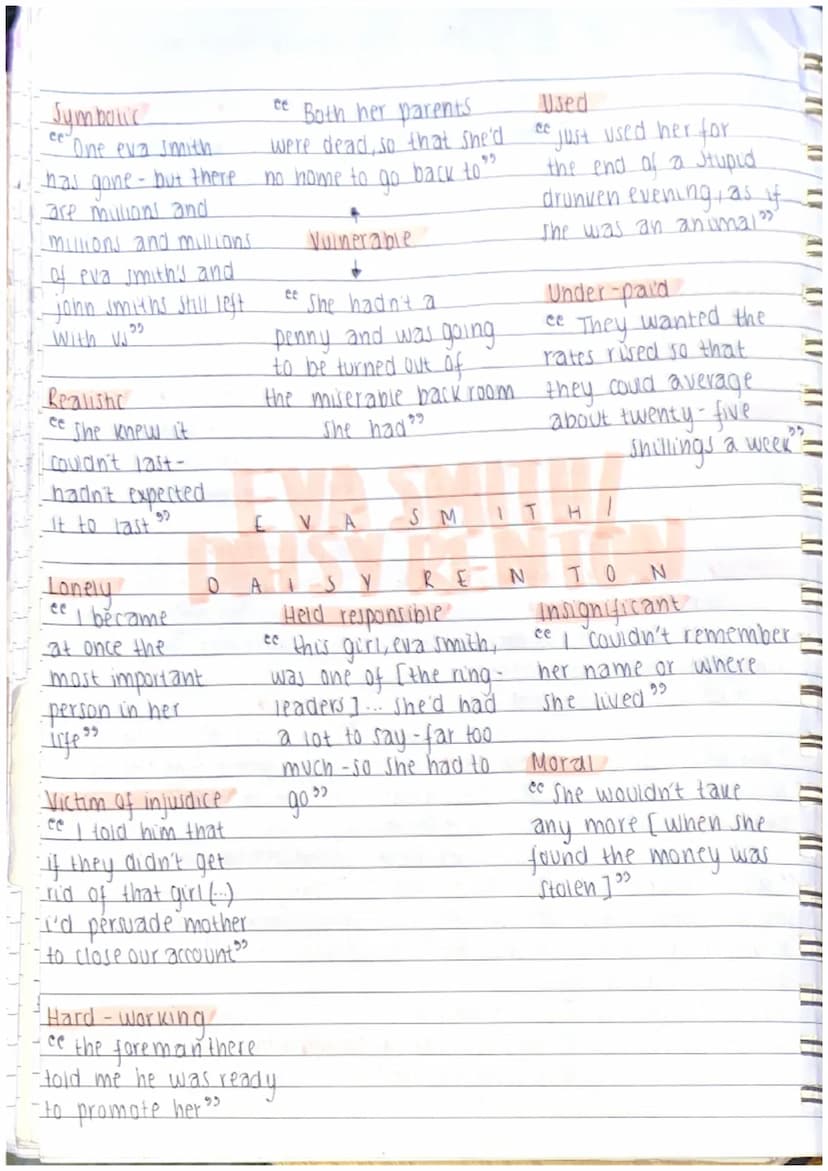 Symbolic
"One eva smith
has gone - but there
are millions and
millions and millions
of eva smith's and
john smiths still left
with us"
Realistic
"She knew it
couldn't last -
hadn't expected
it to last"
"Both her parents
were dead, so that she'd
no home to go back to"
Vulnerable
"She hadn't a
penny and was going
to be turned out of
the miserable back room
she had"
Used
"just used her for
the end of a stupid
drunken evening, as if
she was an animal"
Under-paid
"They wanted the
rates rised so that
they could average
about twenty-five
shillings a week"
EVA SMITH/
DAISY RENTON
EVA SMITH/
DAISY RENTON
Lonely
"I became
at once the
most important
person in her
life"
Victim of injudice
"I told him that
if they didn't get
rid of that girl (...)
i'd persuade mother
to close our account"
Hard-working
"the foreman there
told me he was ready
to promote her"
Held responsible
"this girl, eva smith,
was one of [the ring-
leaders]... she'd had
a lot to say - far too
much - so she had to
go"
Insignificant
"I couldn't remember
her name or where
she lived"
Moral
"She wouldn't take
any more [when she
found the money was
stolen]"